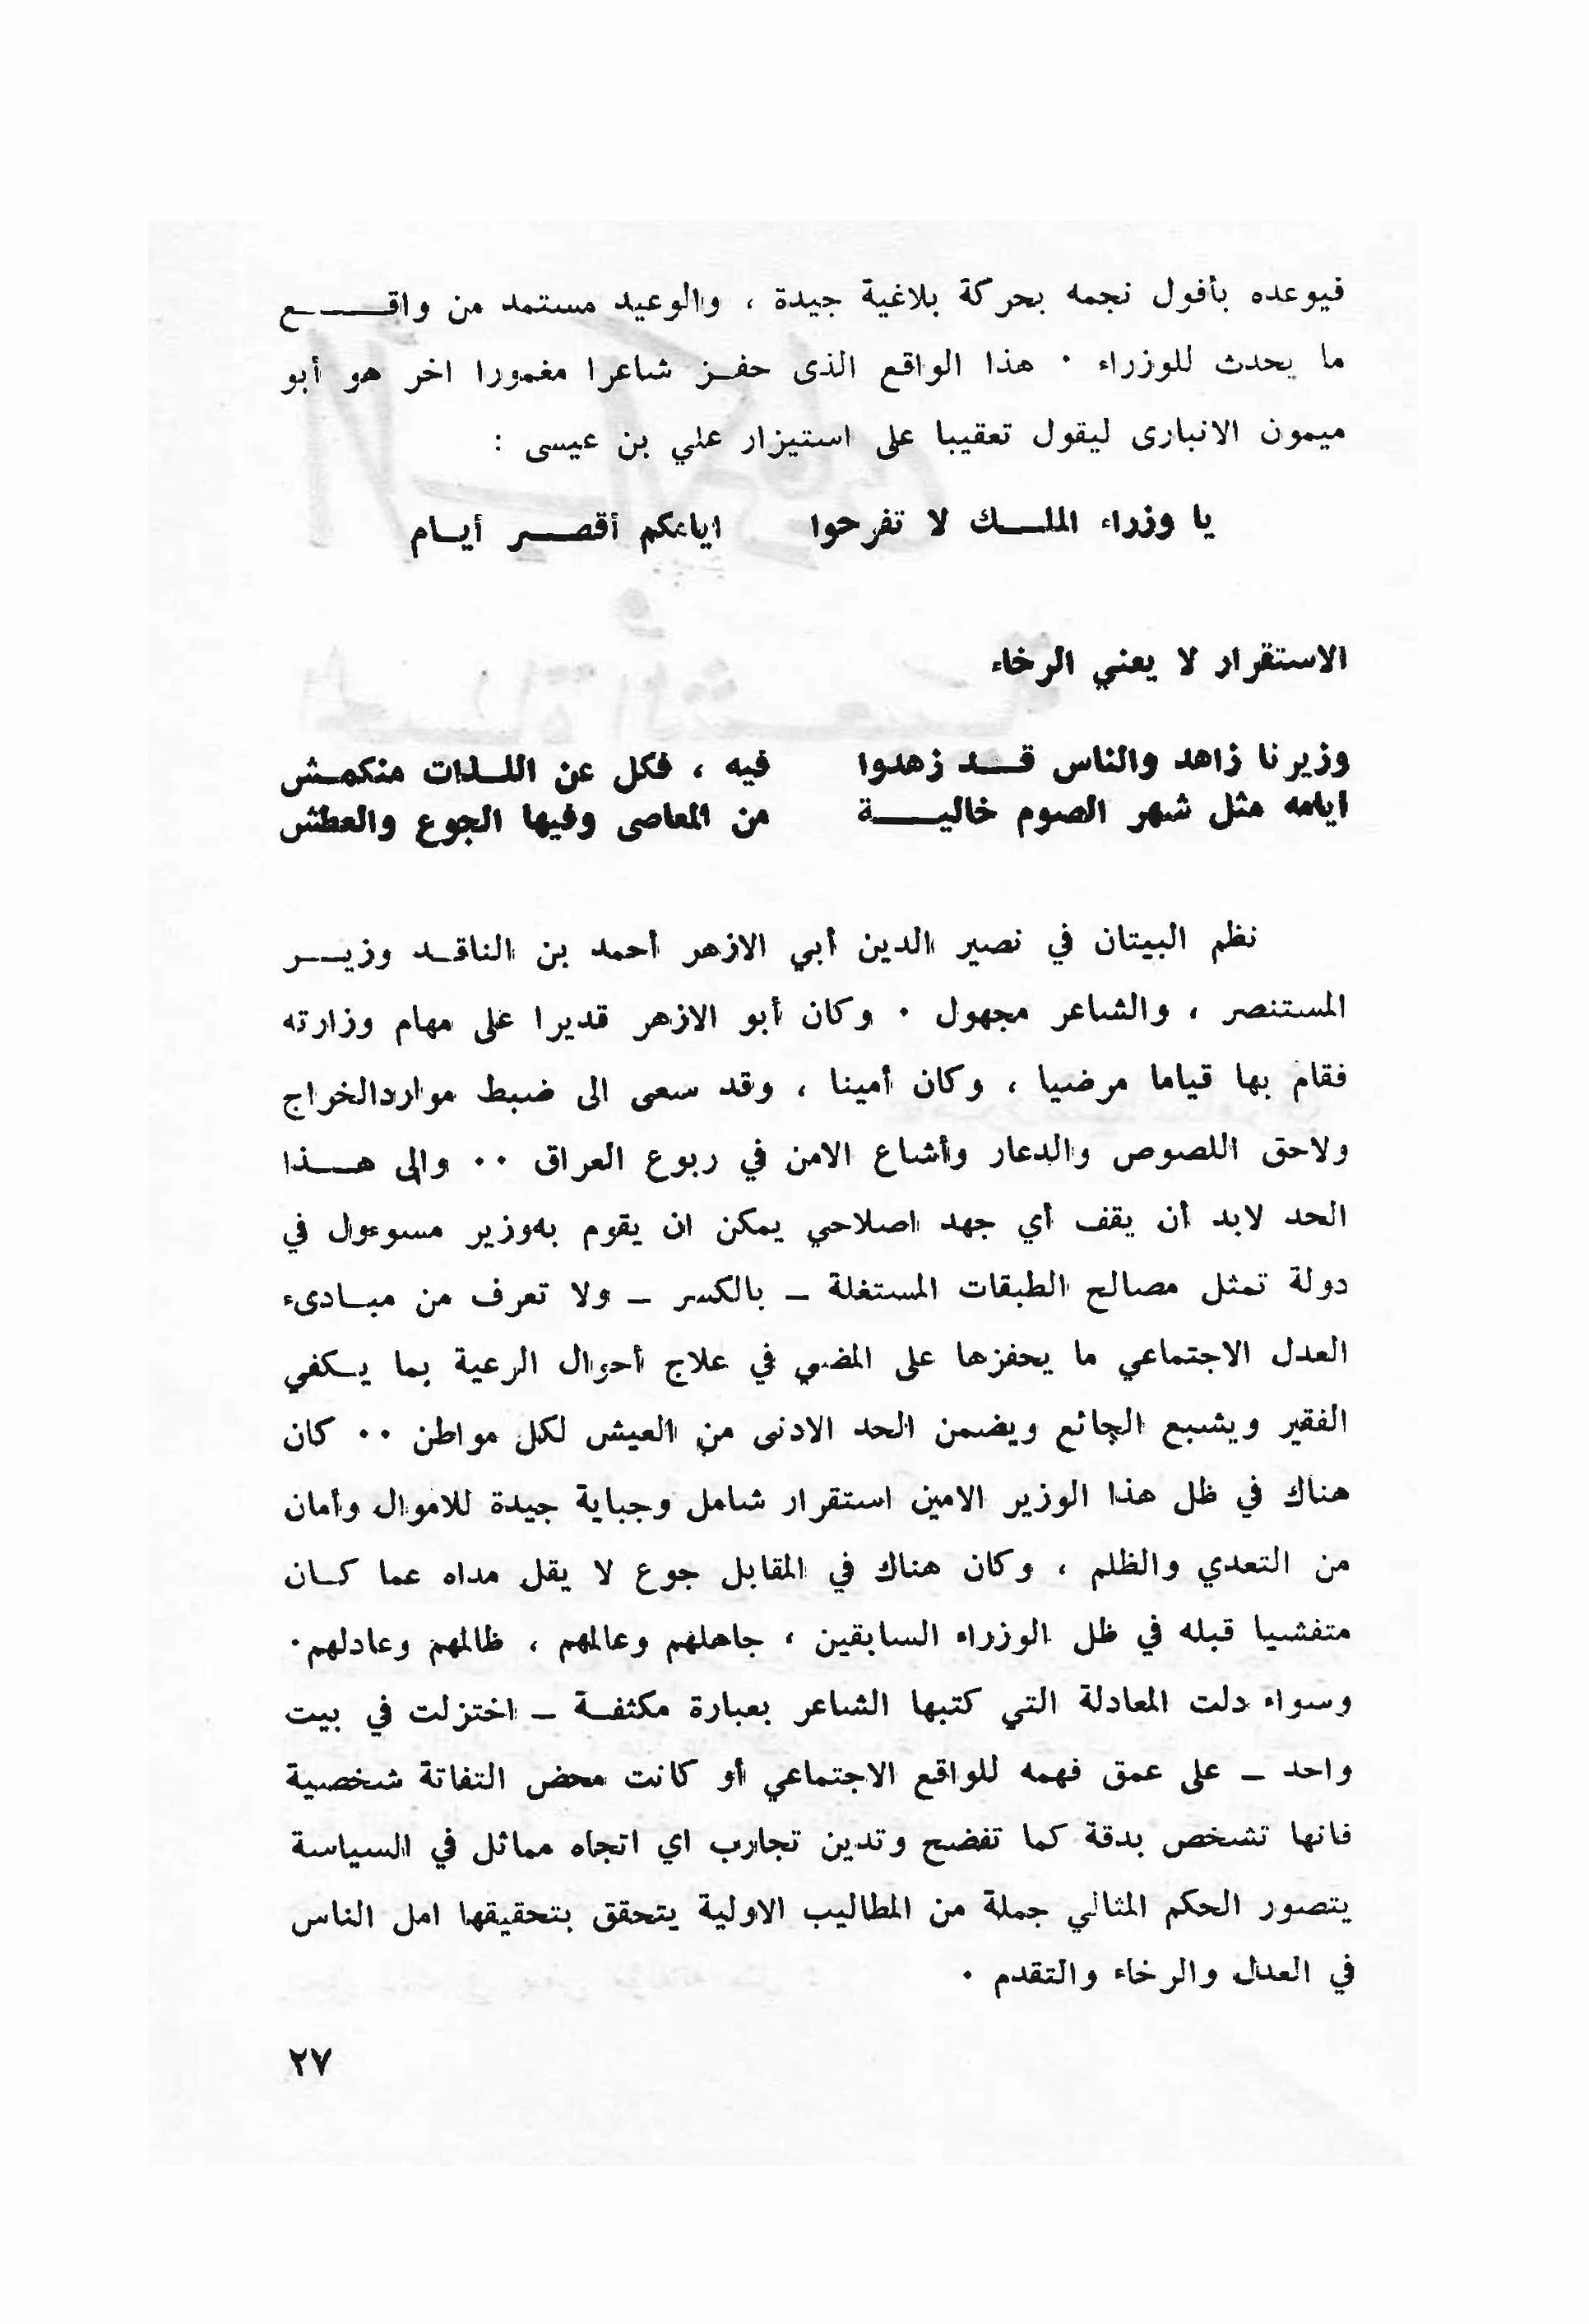 فيوعده بأفول نجمه بحركة بلاغية جيدة ، والوعيد مستمد من واقـــــع
ما يحدث للوزراء ٠ هذا الواقع الذى حفـز شاعرا مغمورا اخر هو أبو
ميمون الانبارى ليقول تعقيبا على استيزار علي بن عيسى :
يا وزراء الملـــك لا تفرحوا ايامكم أقصـــر أيـام
الاستقرار لا يعني الرخاء
وزيرنا زاهد والناس قـــد زهدوا فيه ، فكل عن اللـذات منكمـش
ايامه مثل شهر الصوم خاليـــة من المعاصى وفيها الجوع والعطش
نظم البيتان في نصير الدين أبي الازهر أحمد بن الناقـد وزيـــر
المستنصر ، والشاعر مجهول ٠ وكان أبو الازهر قديرا على مهام وزارته
فقام بها قياما مرضيا ، وكان أمينا ، وقد سعى الى ضبط مواردالخراج
ولاحق اللصوص والدعار وأشاع الامن في ربوع العراق ٠٠ والى هـــذا
الحد لابد أن يقف أي جهد اصلاحي يمكن ان يقوم به‌وزير مسوءول في
دولة تمثل مصالح الطبقات المستغلة ــ بالكسر ــ ولا تعرف من مبـادىء
العدل الاجتماعي ما يحفزها على المضي في علاج أحوال الرعية بما يـكفي
الفقير ويشبع الجائع ويضمن الحد الادنى من العيش لكل مواطن ٠٠ كان
هناك في ظل هذا الوزير الامين استقرار شامل وجباية جيدة للاموال وأمان
من التعدي والظلم ، وكان هناك في المقابل جوع لا يقل مداه عما كـان
متفشيا قبله في ظل الوزراء السابقين ، جاهلهم وعالمهم ، ظالمهم وعادلهم٠
وسواء دلت المعادلة التي كتبها الشاعر بعبارة مكثفـة ــ اختزلت في بيت
واحد ــ على عمق فهمه للواقع الاجتماعي أو كانت محض التفاتة شخصية
فانها تشخص بدقة كما تفضح وتدين تجارب اي اتجاه مماثل في السياسة
يتصور الحكم المثالي جملة من المطاليب الاولية يتحقق بتحقيقها امل الناس
في العدل والرخاء والتقدم ٠
٢٧